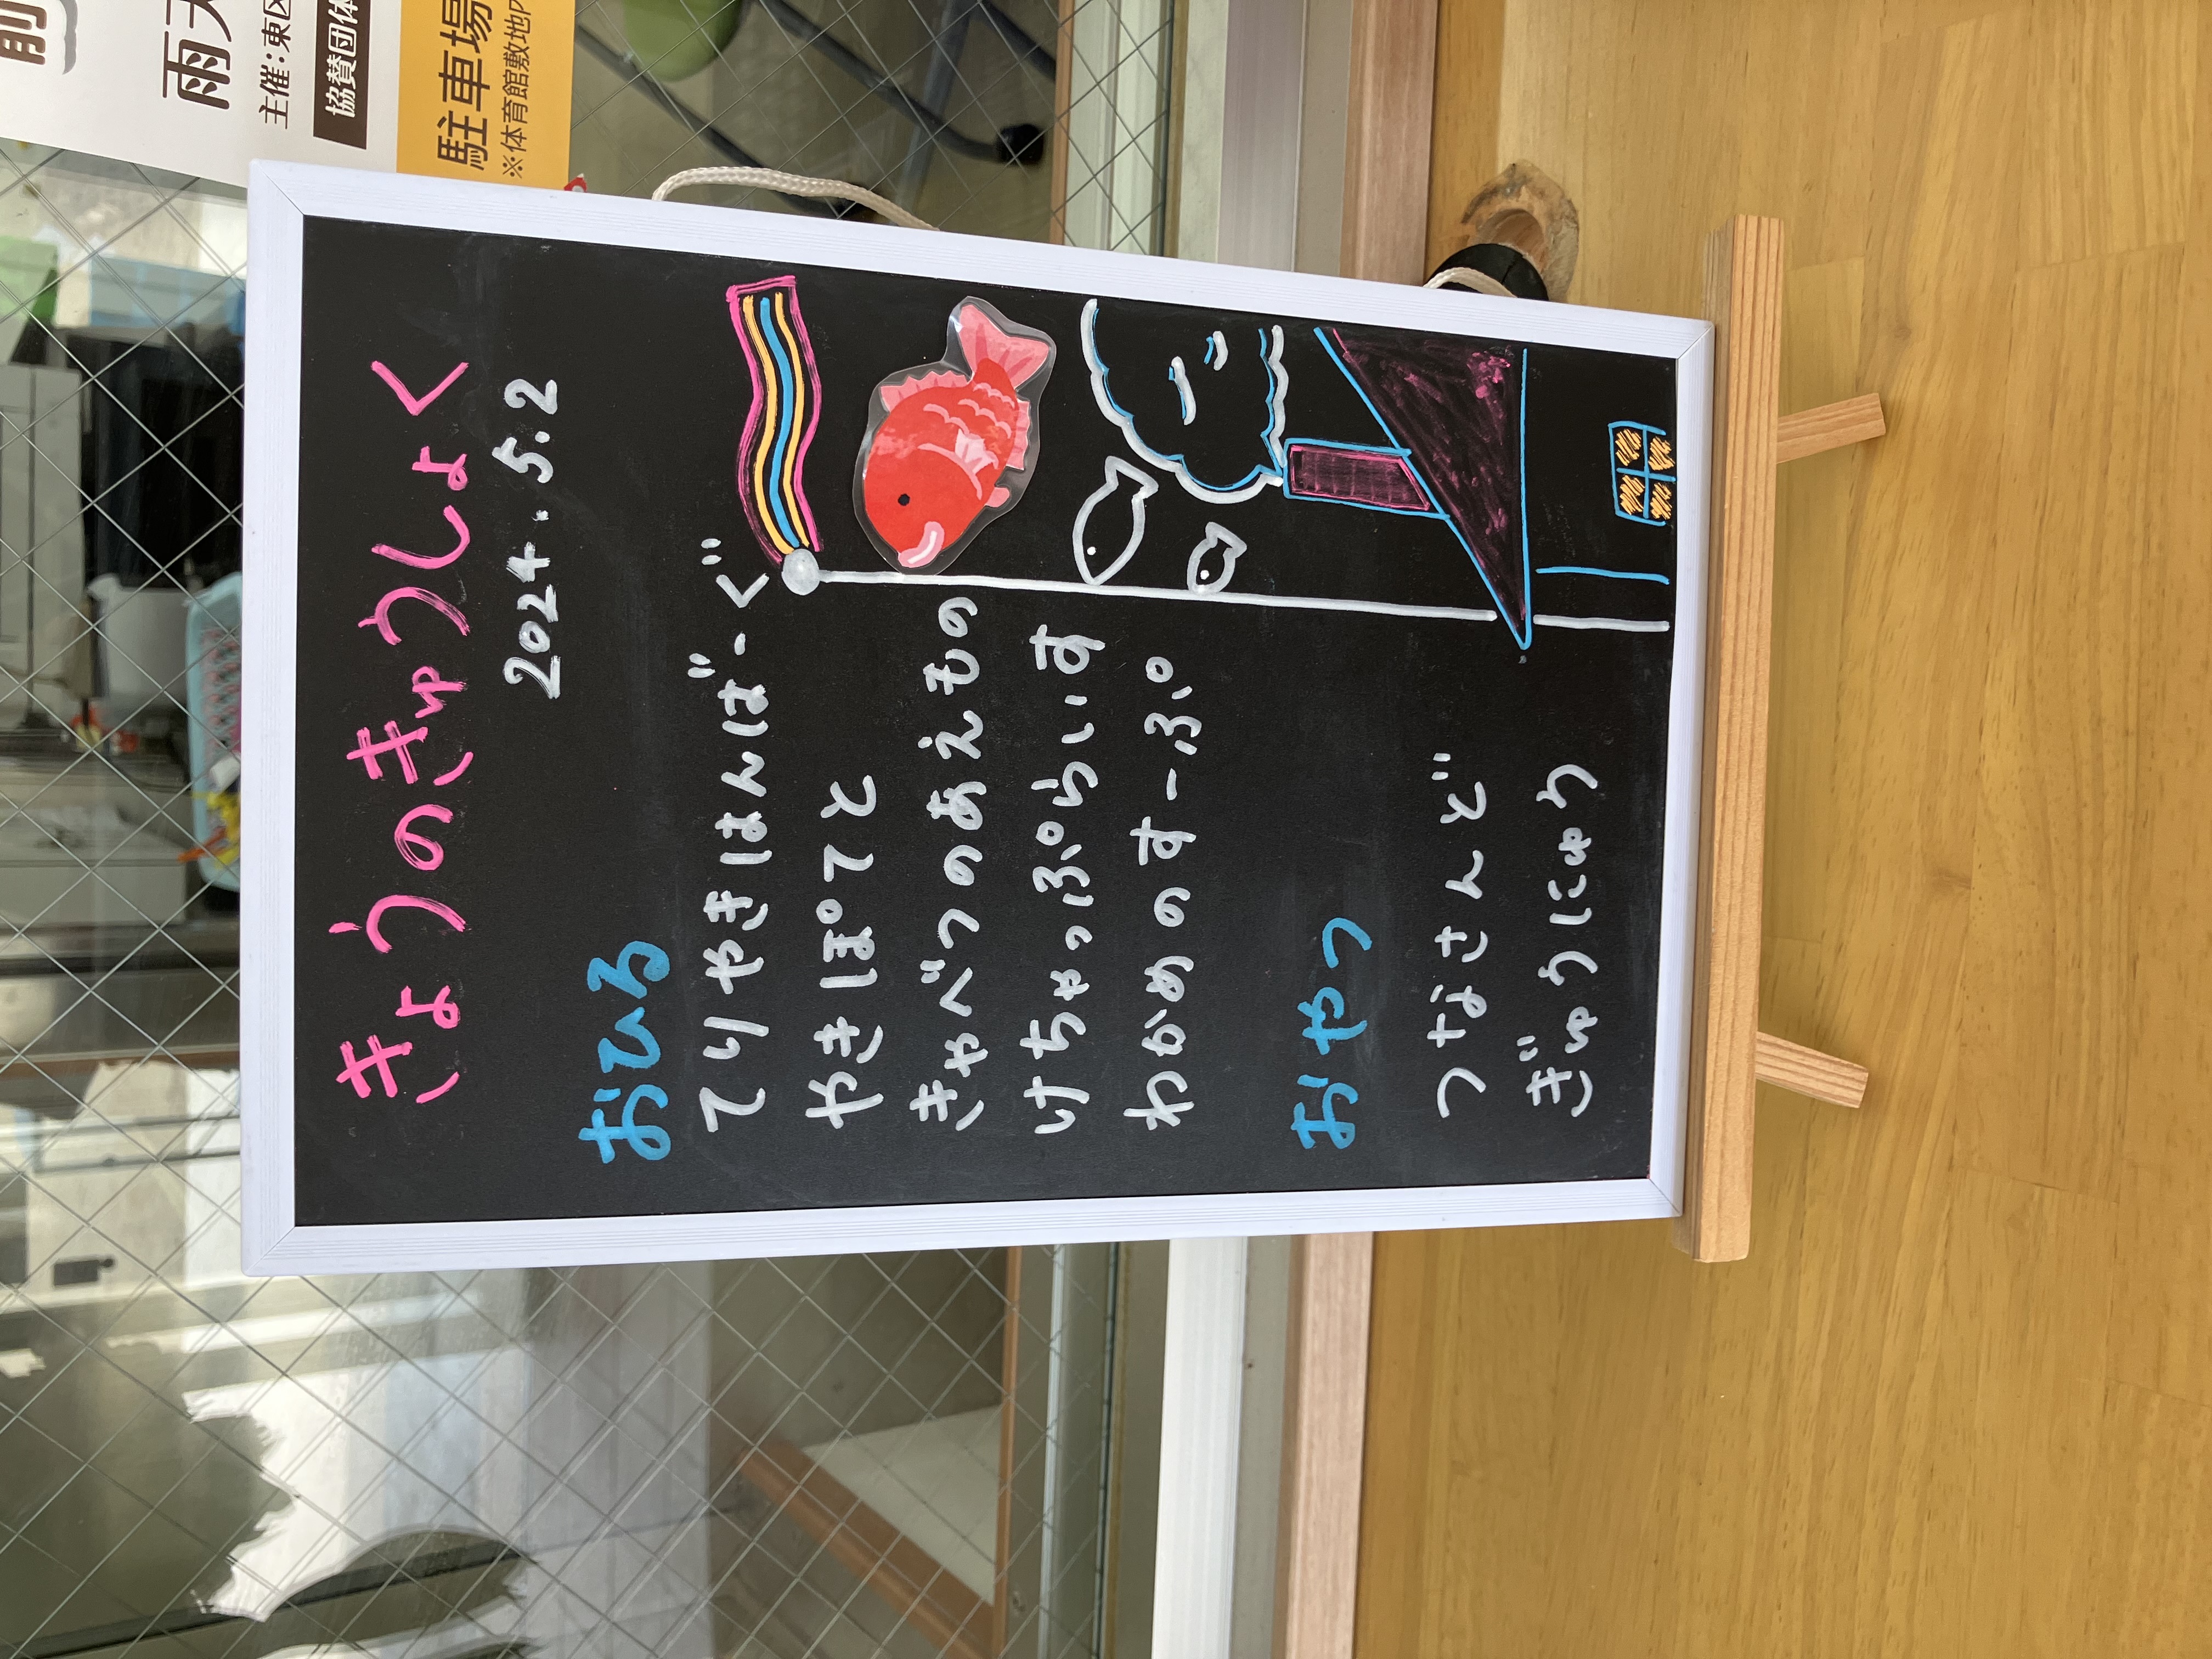 きょうのきゅうしょく
2024.5.2
おひる
てりやきはんばーぐ
やきぽてと
きゃべつのあえもの
けちゃっぷらいす
わかめのすーぷ
おやつ
つなさんど
ぎゅうにゅう
雨天
主催:東区
協賛団体
駐車場
※体育館敷地内